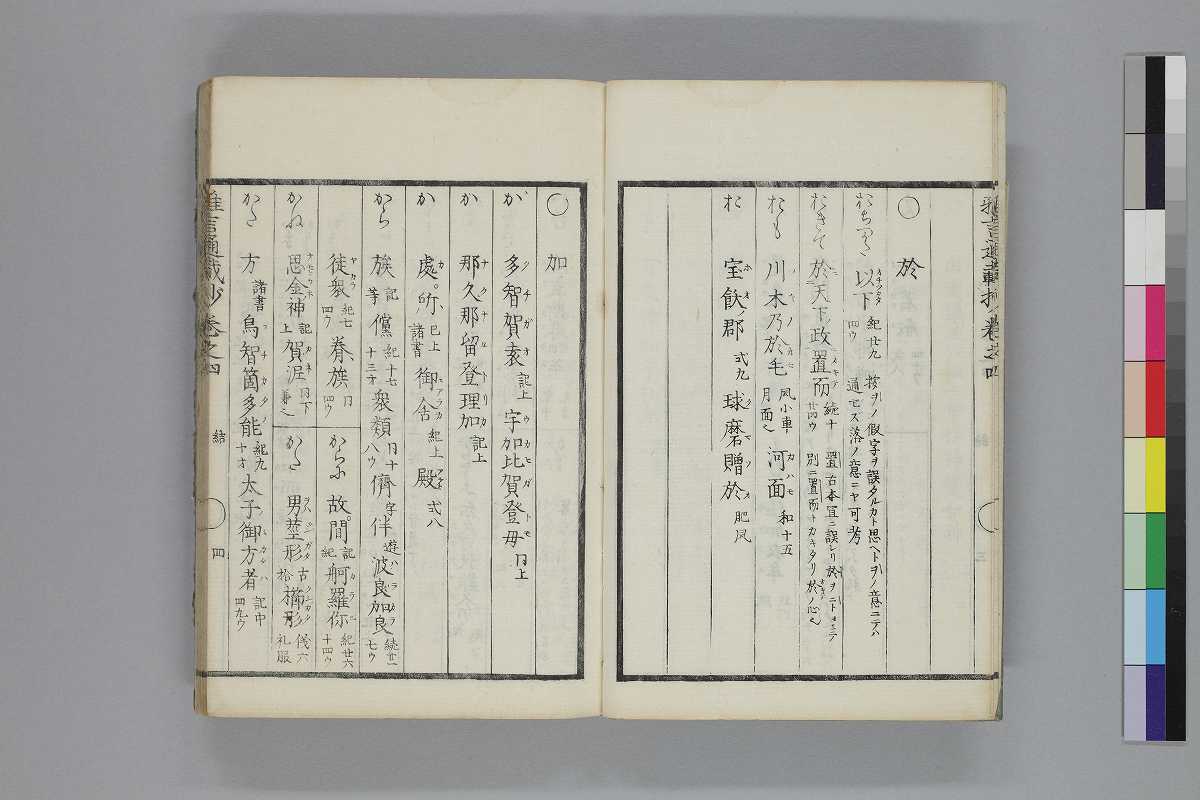 ○ 於
おちつかた 以下 紀廿九 四ウ 按ヲノ假字ヲ誤タルカト思ヘトヲノ意ニテハ 通セス落ノ意ニヤ可考
おきて 於天下政置而 続十 廿四ウ 置古本冝ニ誤レリ於ヲニトよミテ 別ニ置而ナカキタリ於ノ心也
おも 川木乃於毛 凨小車 月面也 河面 和十五
お 宝飫郡 式九 球磨贈於 肥凨
○ 加
が 多智賀袁 記上 宇加比賀登母 同上
か 那久那留登理加 記上
か 處所 已上諸書 御舎 紀上 殿 式八
から 族 記等 儻 紀十七 十三オ 衆類 同十 八ウ 儕 字 伴 遊 波良加良 続廿一 七ウ
徒衆 紀七 四ウ 眷族 同 四ウ
からに 故間 記紀 舸羅你 紀廿六 十四ウ
かね 思金神 記上 賀泥 同下
かた 男莖形 古拾 櫛形 儀六 礼服
かた 方 諸書 鳥智箇多能 紀九 十オ 太子御方者 記中 四九ウ
雅言通載抄 巻之四 結 四